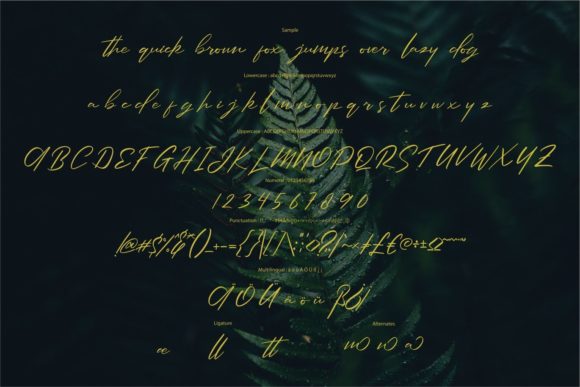 Sample
the quick brown fox jumps over lazy dog
Lowercase : abcdefghijklmnopqrstuvwxyz
a b c d e f g h i j k l m n o p q r s t u v w x y z
Uppercase : ABCDEFGHIJKLMNOPQRSTUVWXYZ
A B C D E F G H I J K L M N O P Q R S T U V W X Y Z
Numeral : 0123456789
1 2 3 4 5 6 7 8 9 0
Punctuation :
Multilingual :
Ä Ö Ü ä ö ü
Ligature
Alternates
œ ll tt